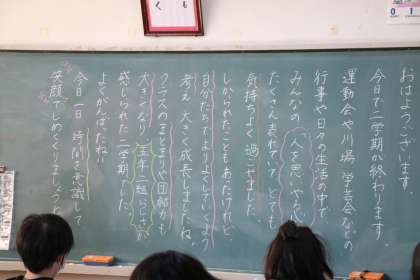 おはようございます
今日で二学期が終わります。
運動会や川場、学芸会などの
行事や日々の生活の中で
みんなの「人を思いやる心」
たくさん表れていて、とても
気持ちよく過ごせました。
しかられたこともあったけれど、
自分たちでよりよくしていくよう
考え、大きく成長しましたね。
クラスのまとまりや団結力も
大きくなり、五年一組らしさが
感じられた二学期でした。
よくがんばったね!!
今日一日、時間を意識して
笑顔でしめくくりましょうね
も
く
0 1